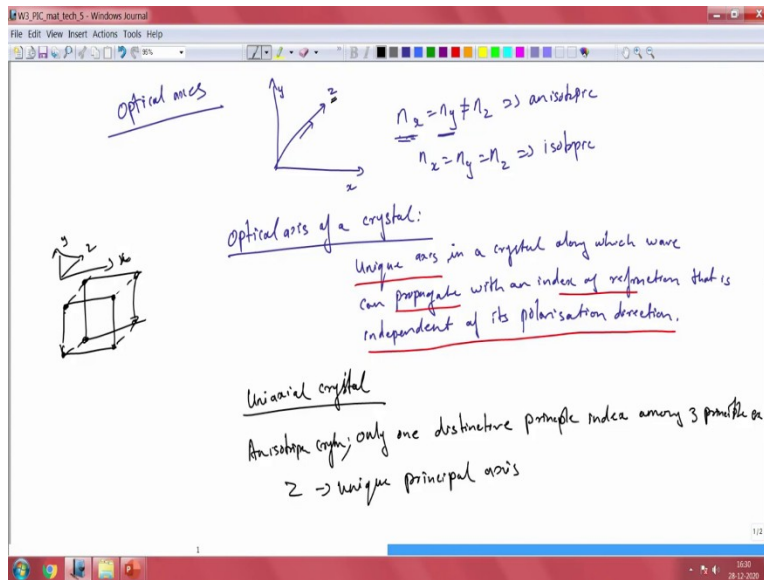 W3_PIC_mat_tech_5 - Windows Journal
File Edit View Insert Actions Tools Help
96%
B I
Optical axes
y
z
x
n_x = n_y ≠ n_z => anisotropic
n_x = n_y = n_z => isotropic
Optical axis of a crystal:
Unique axis in a crystal along which wave
can propagate with an index of refraction that is
independent of its polarisation direction.
y
z
x
Uniaxial crystal
Anisotropic; only one distinctive principle index among 3 principle
z -> unique principal axis
1/2
1
16:30
28-12-2020